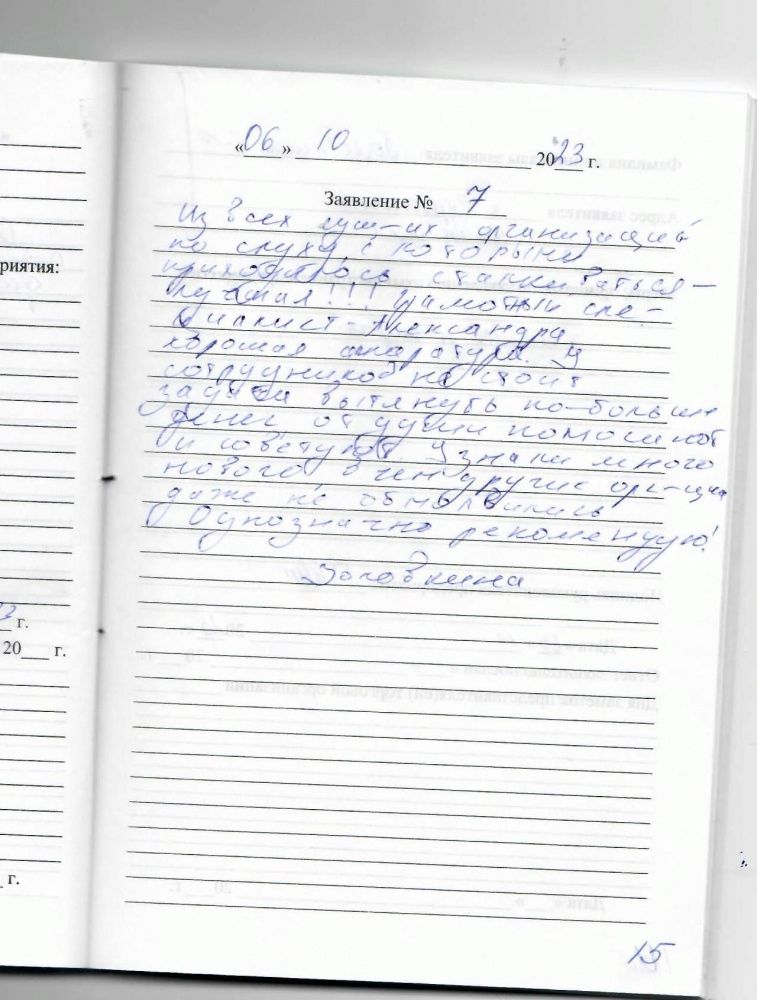 «06» 10 2023 г.
Заявление № 7
Из всех организаций
по слуху с которыми
приходилось сталкиваться –
лучшая!!! Грамотный спе-
циалист – Александра
хорошая аппаратура. У
сотрудников не стоит
задача вытянуть по-больше
денег, от души помогают
и советуют Узнали много
нового о чем другие орг-ции
даже не обмолвились
Однозначно рекомендую!
риятия:
3 г.
20 г.
г.
15